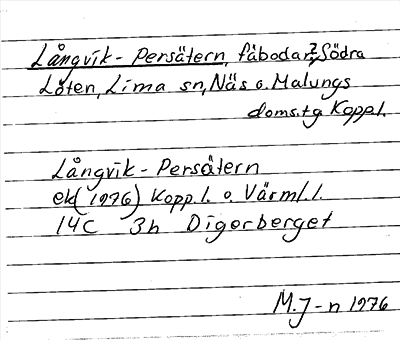 Långvik-Persätern, fäbodar?, Södra
Löten, Lima sn, Näs o. Malungs
doms.tg Kopp.l.
Långvik-Persätern
ek (1976) Kopp.l. o. Värml.l.
14C 3h Digerberget
M.J-n 1976